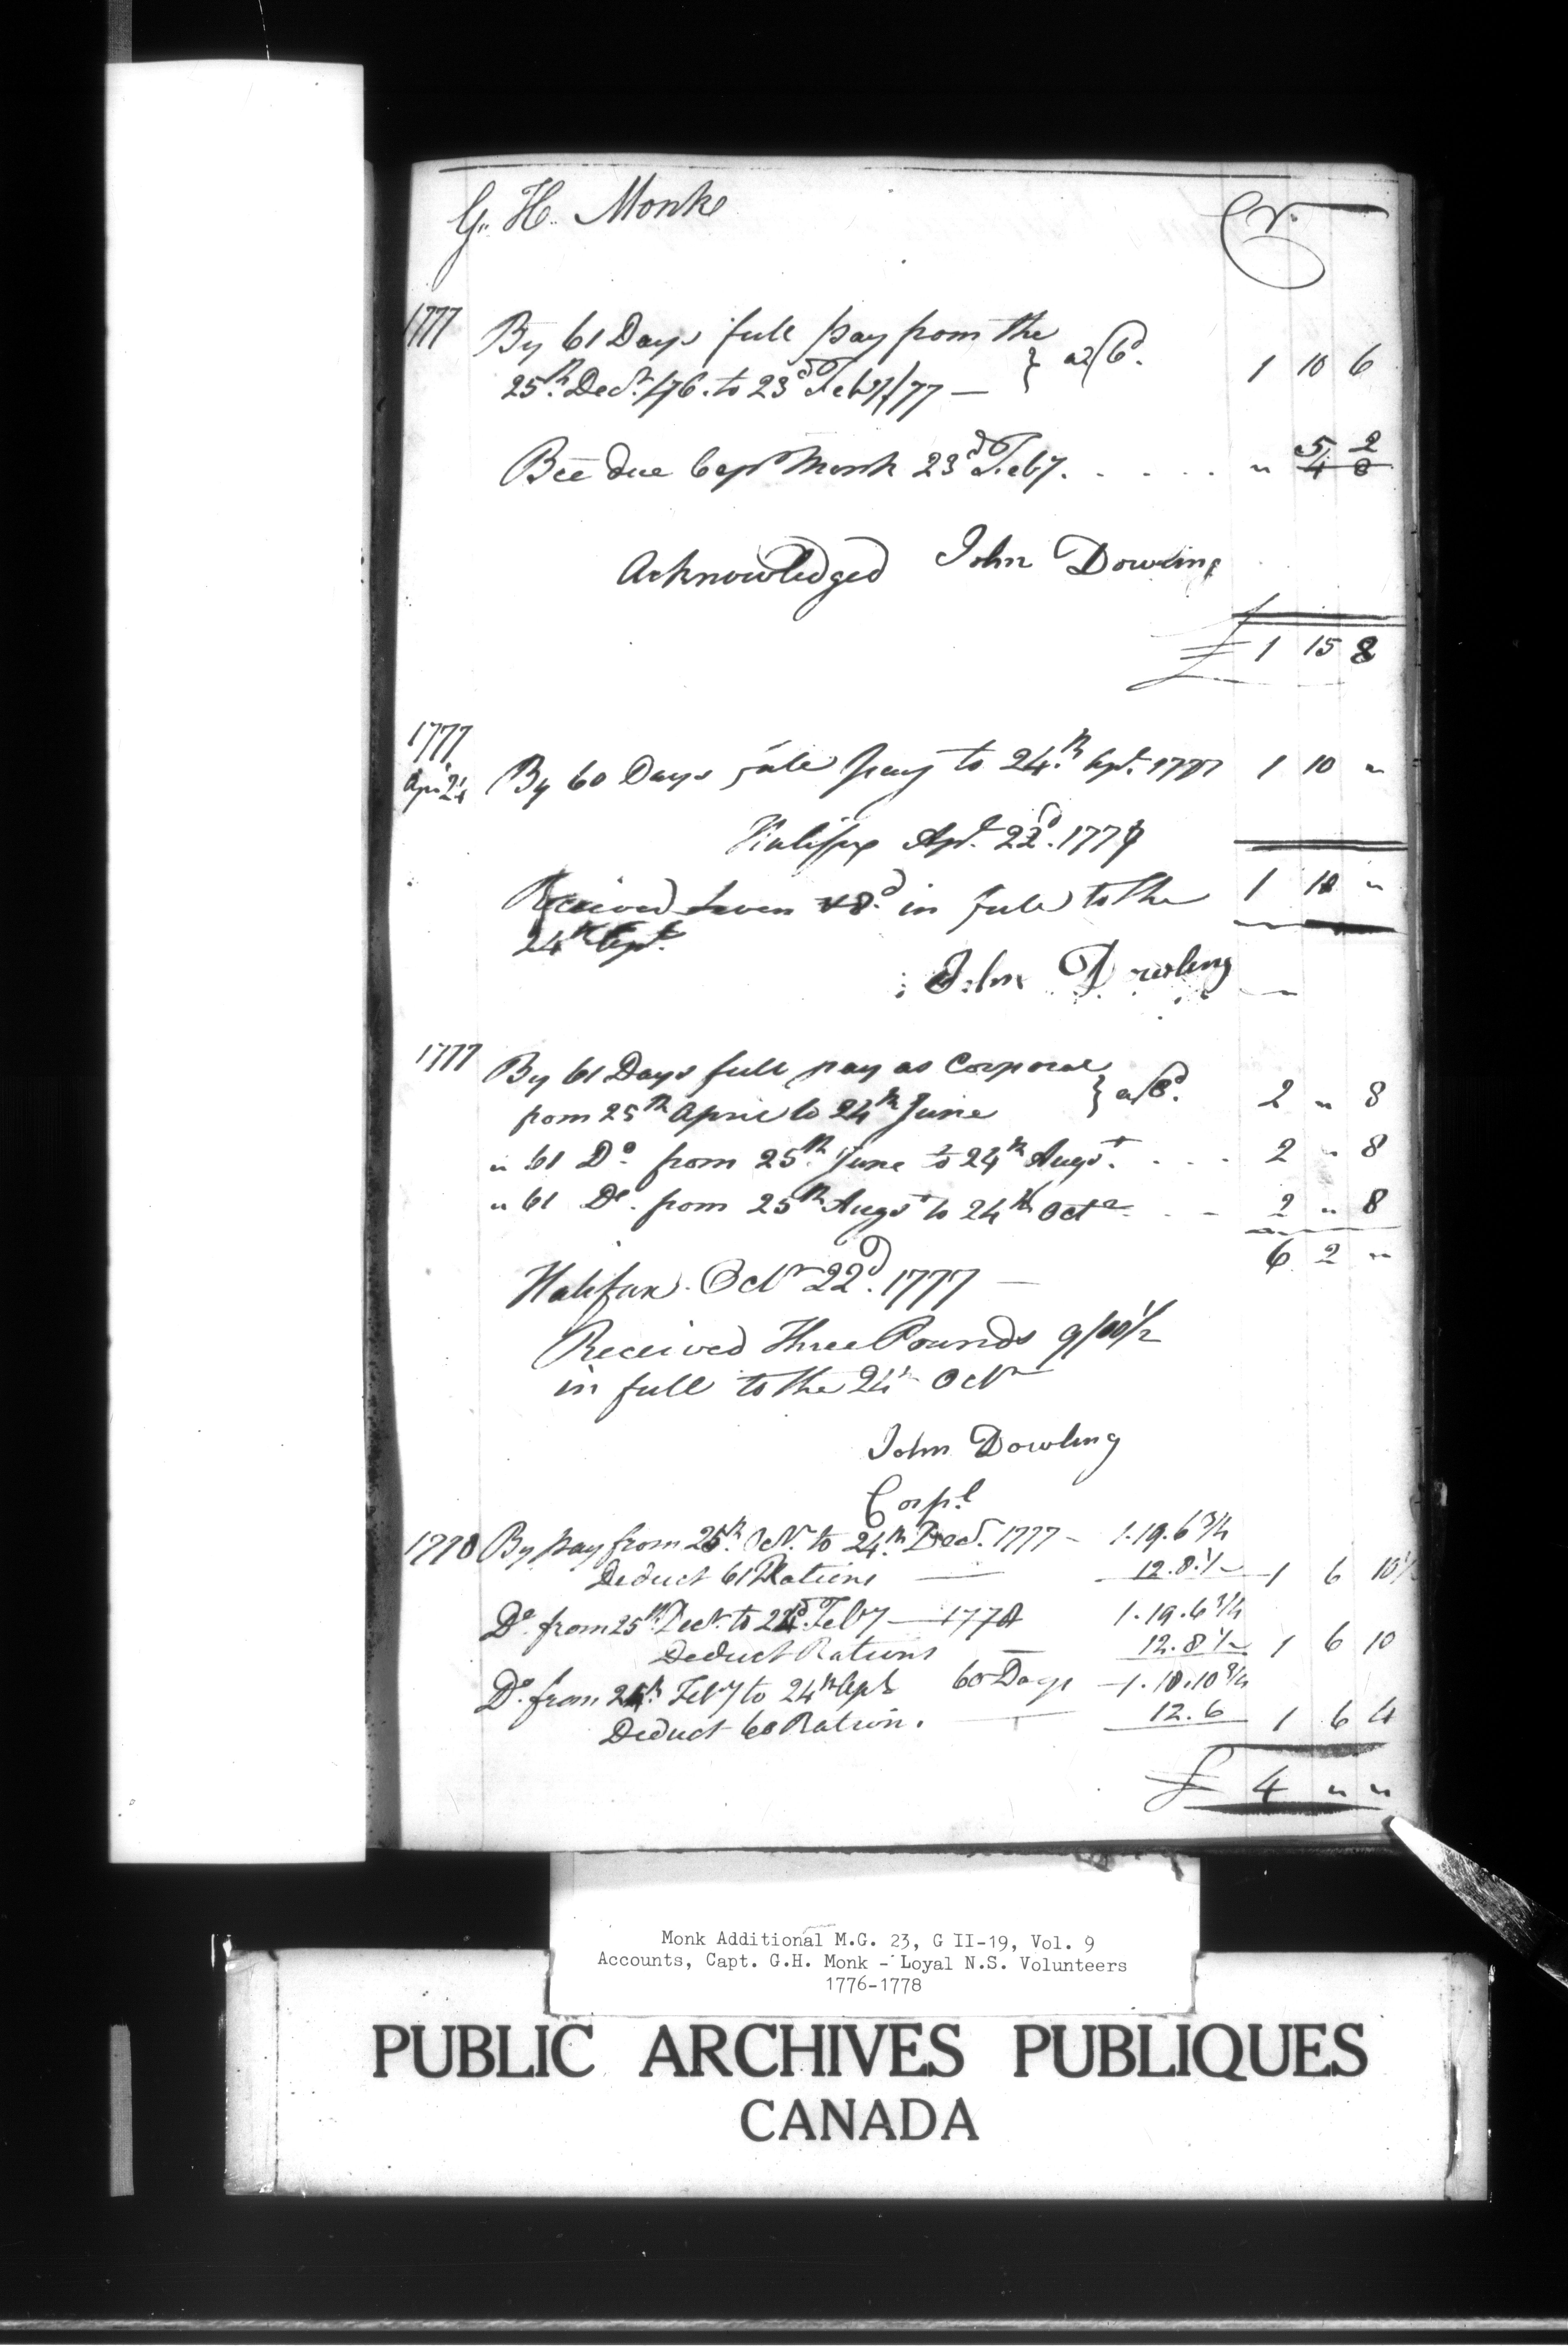 G. H. Monke Cr.
1777 By 61 Days full pay from the
25th Decr. /76. to 23d Feby /77 — } a /6d. 1 10 6
Bce due Capt Monk 23d Feby. . . . . " 5 2
4 8
Acknowledged John Dowling
£ 1 15 8
1777
Apr 24 By 60 Days full pay to 24th Apl. 1777 1 10 "
Halifax Apl. 22d. 1777
Received Seven /8d in full to the 1 10 "
24th Apl.
John Dowling
1777 By 61 Days full pay as Corporal
from 25th April to 24th June } a /8d. 2 " 8
" 61 Do. from 25th June to 24th Augst. . . . 2 " 8
" 61 Do. from 25th Augst to 24th Octr. . - 2 " 8
6 2 "
Halifax. Octr 22d. 1777 —
Received Three Pounds 9/10 1/2
in full to the 24th Octr
John Dowling
Corpl
1778 By pay from 25th. Octr. to 24th Decr. 1777 - 1.19.6 3/4
Deduct 61 Rations — 12.8 1/2 1 6 10 1/
Do. from 25th Decr. to 22d Feby — 1778 1.19.6 3/4
Deduct Rations — 12.8 1/2 1 6 10
Do. from 24th. Feby to 24th Apl 60 Days 1.18.10 3/4
Deduct 60 Ration. — 12.6 1 6 4
£ 4 " "
Monk Additional M.G. 23, G II-19, Vol. 9
Accounts, Capt. G.H. Monk - Loyal N.S. Volunteers
1776-1778
PUBLIC ARCHIVES PUBLIQUES
CANADA